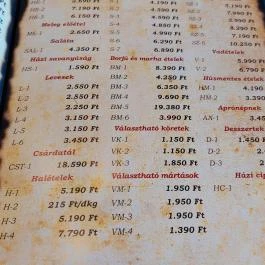 HE-1
4.190 Ft
HE-5 6.150 Ft S-3 4.590 Ft
Meleg előétel S-4 4.850 Ft
ME-1 2.650 Ft S-5 4.990 Ft
Saláta S-6 6.290 Ft SE-6 10.250 Ft
SAL-1 4.350 Ft S-7 6.890 Ft Vadételek
Házi savanyúság Borjú és marha ételek V-1 5.990
HS-1 1.590 Ft BM-1 8.390 Ft V-2 6.790
Levesek BM-2 4.250 Ft Húsmentes ételek
L-1 2.550 Ft BM-3 6.350 Ft HM-1 4.190
L-2 2.550 Ft BM-4 9.690 Ft HM-2 3.390
L-3 2.250 Ft BM-5 19.380 Ft Aprónépnek
L-4 3.150 Ft BM-6 3.990 Ft AX-1 3.45
L-5 3.150 Ft Választható köretek Desszertek
L-6 3.450 Ft VK-1 1.150 Ft D-1 1.450
Csárdatál VK-2 1.150 Ft D-2
CST-1 18.590 Ft VK-3 1.850 Ft D-3
Halételek Választható mártások Házi cip
H-1 5.190 Ft VM-1 1.950 Ft HC-1
H-2 215 Ft/dkg VM-2 1.950 Ft
H-3 5.190 Ft VM-3 1.950 Ft
H-4 7.790 Ft VM-4 1.390 Ft